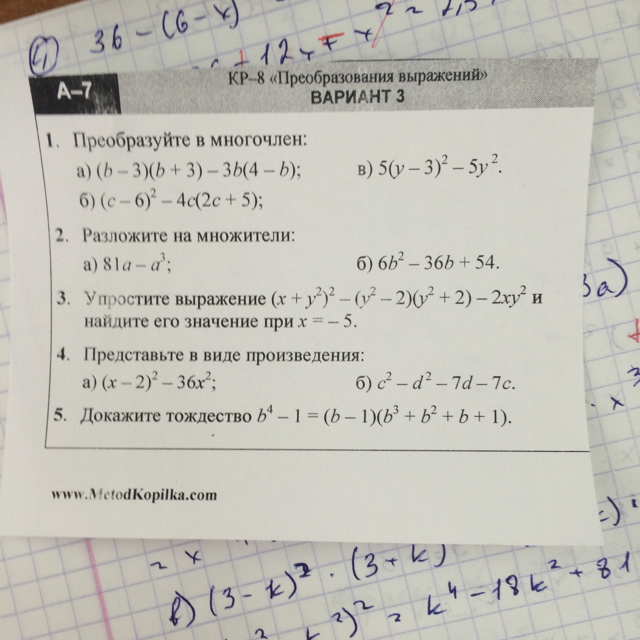 4) 36 – (6 – x)
+ 12x
А–7
КР–8 «Преобразования выражений»
ВАРИАНТ 3
1. Преобразуйте в многочлен:
а) (b – 3)(b + 3) – 3b(4 – b); в) 5(y – 3)² – 5y².
б) (c – 6)² – 4c(2c + 5);
2. Разложите на множители:
а) 81a – a³; б) 6b² – 36b + 54.
3. Упростите выражение (x + y²)² – (y² – 2)(y² + 2) – 2xy² и
найдите его значение при x = – 5.
4. Представьте в виде произведения:
а) (x – 2)² – 36x²; б) c² – d² – 7d – 7c.
5. Докажите тождество b⁴ – 1 = (b – 1)(b³ + b² + b + 1).
www.MetodKopilka.com
3a)
· x³
= x
в) (3 – k)² · (3 + k)
)² = k⁴ – 18k² + 81